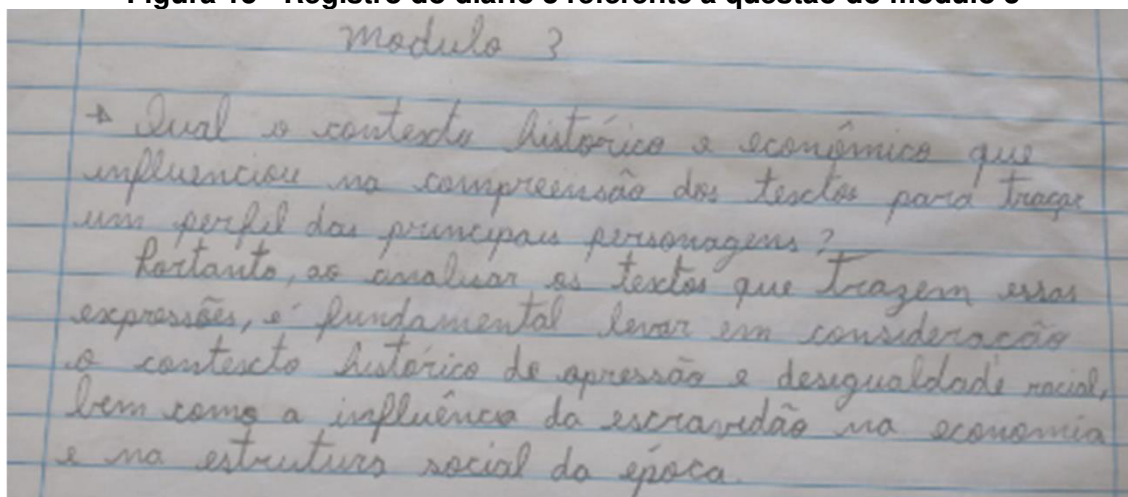 Modulo 3
→ Qual o contexto histórico e econômico que
influenciou na compreensão dos textos para traçar
um perfil dos principais personagens?
Portanto, ao analisar os textos que trazem essas
expressões, é fundamental levar em consideração
o contexto histórico de opressão e desigualdade racial,
bem como a influência da escravidão na economia
e na estrutura social da época.